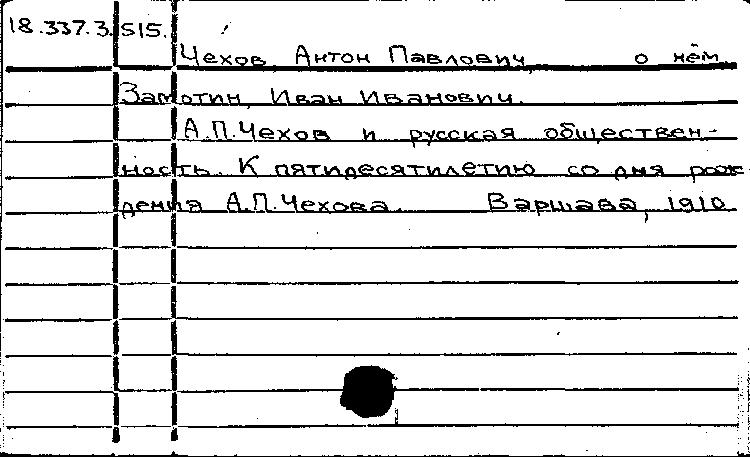 18.337.3.515.
Чехов, Антон Павлович, о нём
Замотин, Иван Иванович.
А.П.Чехов и русская обществен-
ность. К пятидесятилетию со дня рож
дения А.П.Чехова. Варшава, 1910